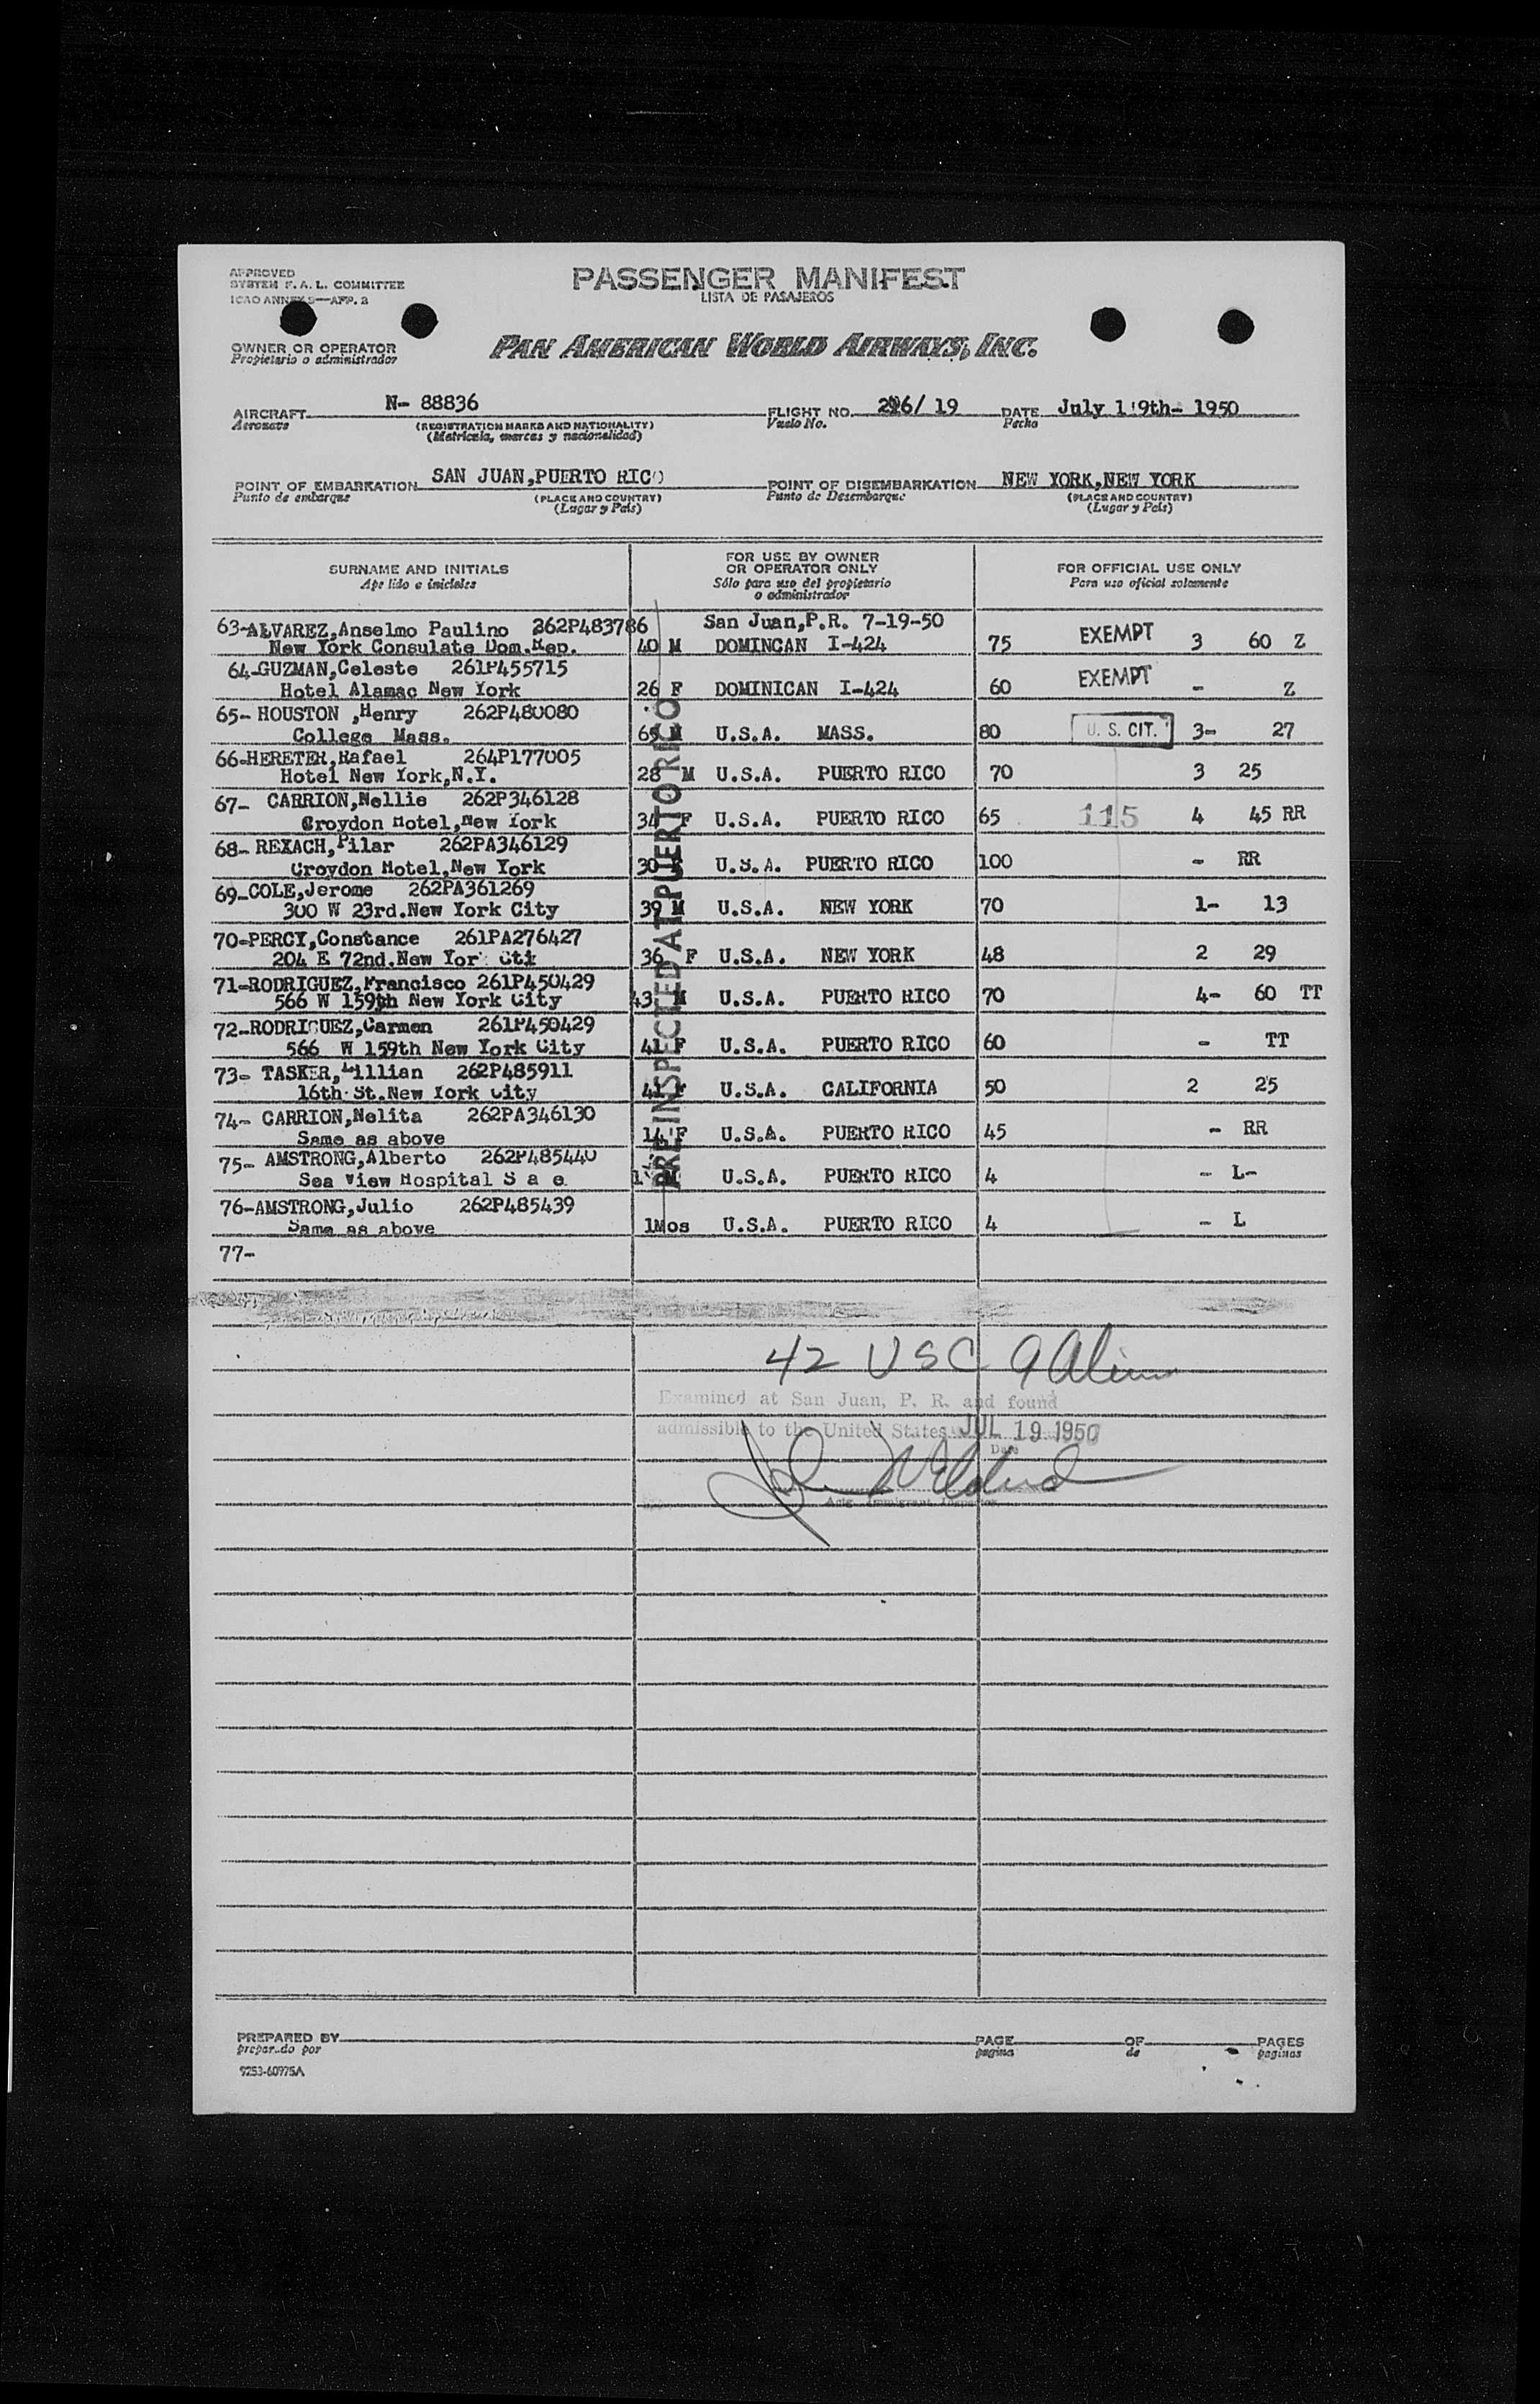 APPROVED
SYSTEM F. A. L. COMMITTEE
ICAO ANNEX 9—APP. 3
PASSENGER MANIFEST
LISTA DE PASAJEROS
OWNER OR OPERATOR
Propietario o administrador
PAN AMERICAN WORLD AIRWAYS, INC.
AIRCRAFT N- 88836 FLIGHT NO. 296/ 19 DATE July 19th- 1950
Aeronave (REGISTRATION MARKS AND NATIONALITY) Vuelo No. Fecha
(Matricula, marcas y nacionalidad)
POINT OF EMBARKATION SAN JUAN,PUERTO RICO POINT OF DISEMBARKATION NEW YORK,NEW YORK
Punto de embarque (PLACE AND COUNTRY) Punto de Desembarque (PLACE AND COUNTRY)
(Lugar y País) (Lugar y País)
SURNAME AND INITIALS FOR USE BY OWNER OR OPERATOR ONLY FOR OFFICIAL USE ONLY
Apellido e iniciales Sólo para uso del propietario o administrador Para uso oficial solamente
63-ALVAREZ,Anselmo Paulino 262P483786 San Juan,P.R. 7-19-50
New York Consulate Dom.Rep. 40 M DOMINCAN I-424 75 EXEMPT 3 60 Z
64-GUZMAN,Celeste 261P455715
Hotel Alamac New York 26 F DOMINICAN I-424 60 EXEMPT - Z
65- HOUSTON ,Henry 262P480080
College Mass. 65 M U.S.A. MASS. 80 U. S. CIT. 3- 27
66-HERETER,Rafael 264P177005
Hotel New York,N.Y. 28 M U.S.A. PUERTO RICO 70 3 25
67- CARRION,Nellie 262P346128
Croydon Hotel,New York 34 F U.S.A. PUERTO RICO 65 115 4 45 RR
68- REXACH,Pilar 262PA346129
Croydon Hotel,New York 30 U.S.A. PUERTO RICO 100 - RR
69-COLE,Jerome 262PA361269
300 W 23rd.New York City 39 M U.S.A. NEW YORK 70 1- 13
70-PERCY,Constance 261PA276427
204 E 72nd.New Yor Cti 36 F U.S.A. NEW YORK 48 2 29
71-RODRIGUEZ,Francisco 261P450429
566 W 159th New York City 43 M U.S.A. PUERTO RICO 70 4- 60 TT
72-RODRIGUEZ,Carmen 261P450429
566 W 159th New York City 41 F U.S.A. PUERTO RICO 60 - TT
73- TASKER,Lillian 262P485911
16th St.New York City 41 F U.S.A. CALIFORNIA 50 2 25
74- CARRION,Nelita 262PA346130
Same as above 14 F U.S.A. PUERTO RICO 45 - RR
75- AMSTRONG,Alberto 262P485440
Sea View Hospital S a e U.S.A. PUERTO RICO 4 - L-
76-AMSTRONG,Julio 262P485439
Same as above 1Mos U.S.A. PUERTO RICO 4 - L
77-
PRE-INSPECTED AT PUERTO RICO
42 USC 9 Aliens
Examined at San Juan, P. R. and found
admissible to the United States JUL 19 1950
Date
Actg. Immigrant Inspector
PREPARED BY PAGE OF PAGES
preparado por pagina de paginas
9253-60975A